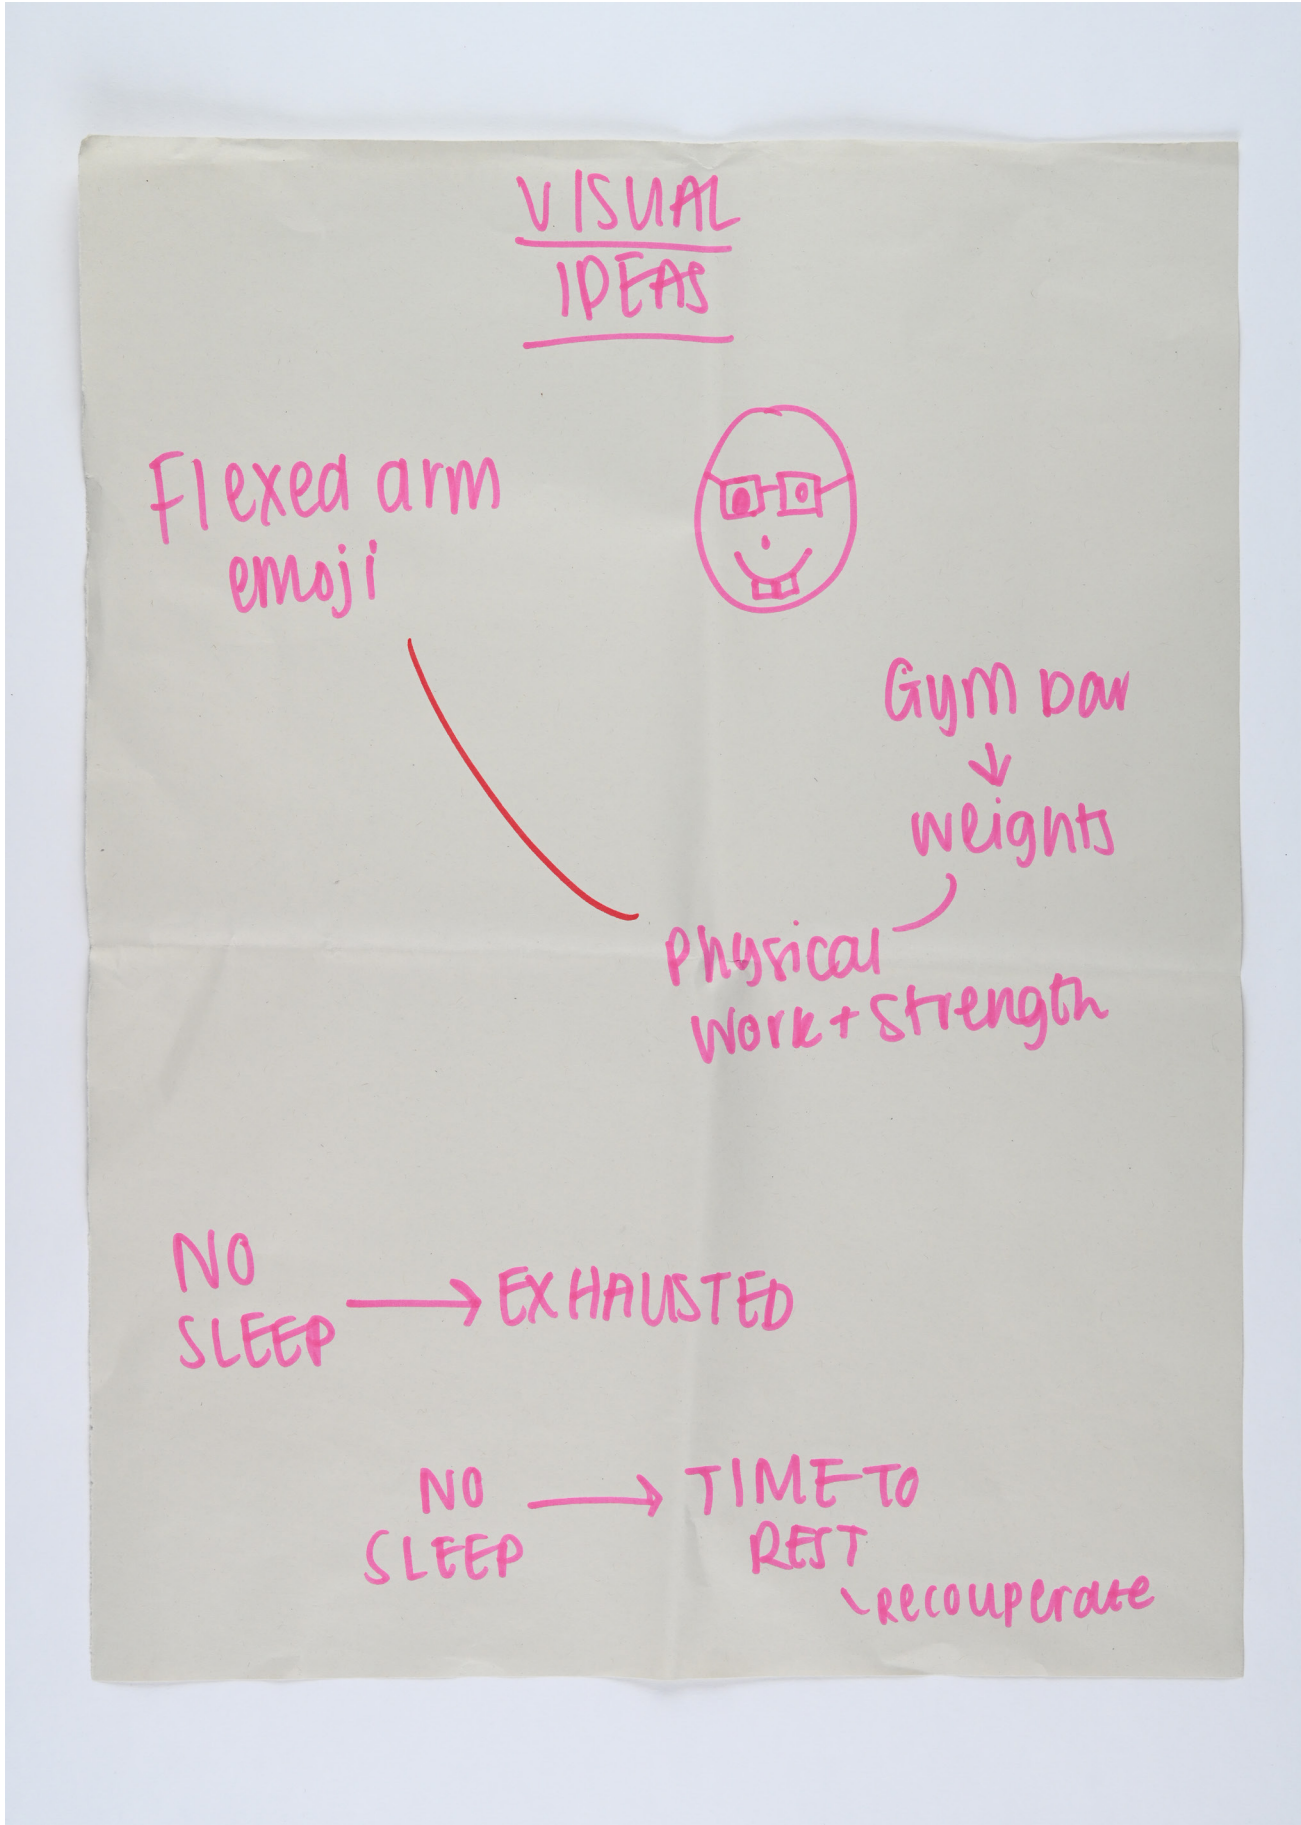 VISUAL
IDEAS
Flexed arm
emoji
Gym bar
↓
weights
Physical
work + strength
NO
SLEEP → EXHAUSTED
NO
SLEEP → TIME TO
REST
recouperate